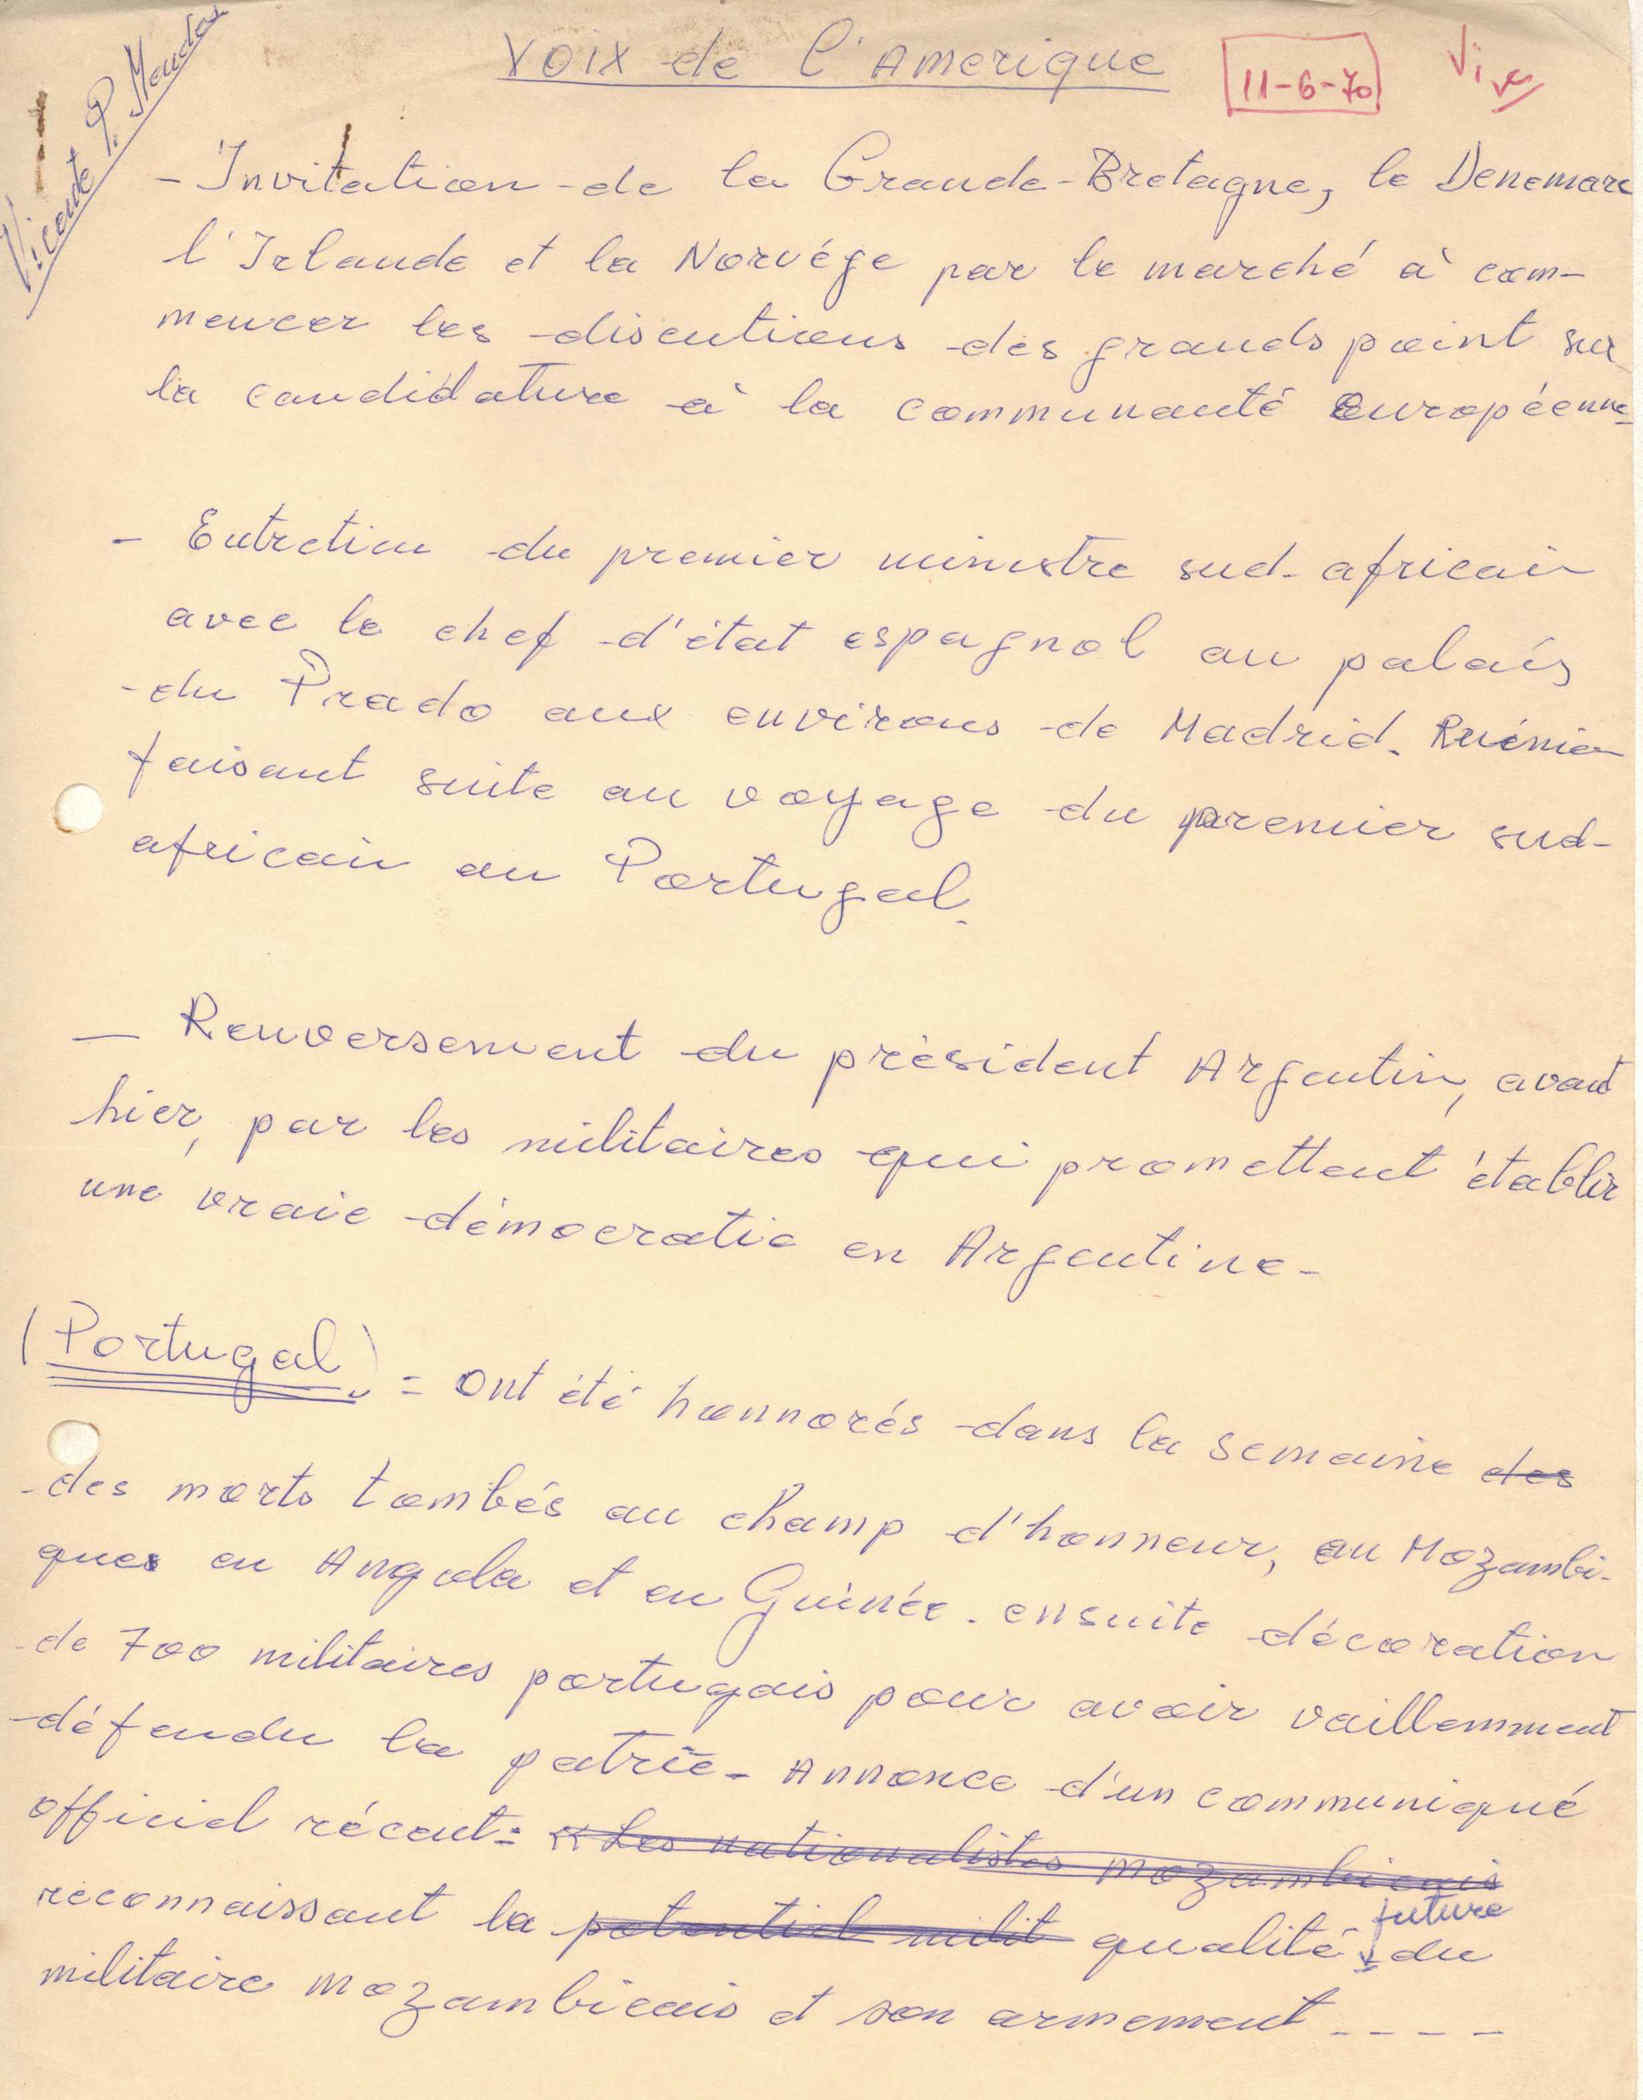 Vicente P. Mendes
VOIX de l'AMERIQUE
11-6-70
- Invitation de la Grande-Bretagne, le Denemarc
l'Irlande et la Norvége par le marché à com-
mencer les discutions des grands point sur
la candidature à la communauté européenne
- Entretien du premier ministre sud-africain
avec le chef d'état espagnol au palais
du Prado aux environs de Madrid. Ruénion
faisant suite au voyage du premier sud-
africain au Portugal.
- Renversement du président Argentin, avant
hier, par les militaires qui promettent établir
une vraie démocratie en Argentine -
(Portugal) = Ont été honnorés dans la semaine des
des morts tombés au champ d'honneur, au Mozambi-
ques en Angola et en Guinée. ensuite décoration
de 700 militaires portugais pour avoir vaillemment
défendu la patrie - Annonce d'un communiqué
officiel récent: « Les nationalistes mozambicais
reconnaissant la potentiel milit qualité future du
militaire mozambicais et son armement ----